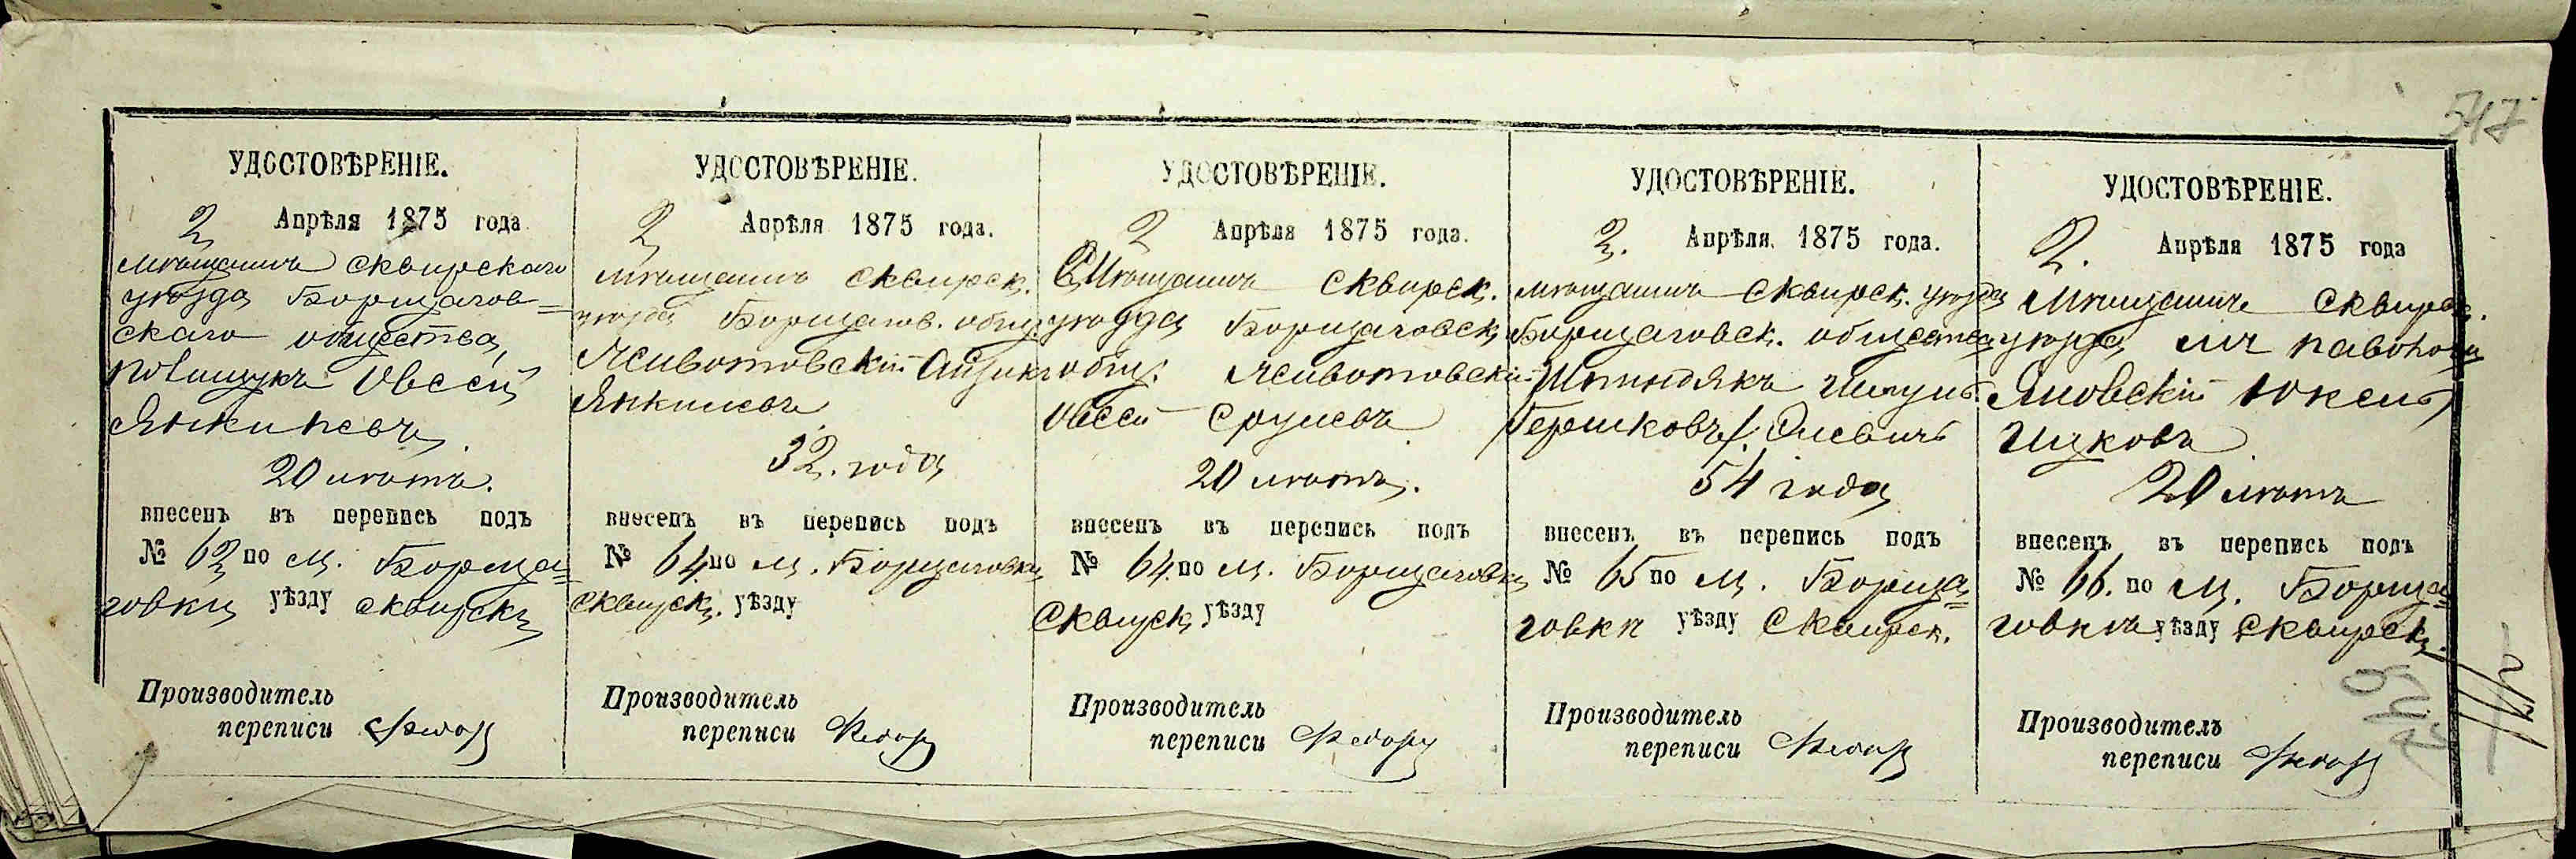 547
УДОСТОВѢРЕНІЕ.
2 Апрѣля 1875 года
мѣщанинъ Сквирскаго
уѣзда Борщагов=
скаго общества,
Овсей
20 лѣтъ.
внесенъ въ перепись подъ
№ 62 по м. Борща=
говки уѣзду Сквирск
Производитель
переписи
УДОСТОВѢРЕНІЕ.
2 Апрѣля 1875 года.
мѣщанинъ Сквирск.
уѣзда Борщагов. общ.
Животовскій
Янкелевъ
32. года
внесенъ въ перепись подъ
№ 64. по м. Борщаговки
Сквирск. уѣзду
Производитель
переписи
УДОСТОВѢРЕНІЕ.
2 Апрѣля 1875 года.
Мѣщанинъ Сквирск.
уѣзда Борщаговск
общ. Животовскій
Овсей Срулевъ
20 лѣтъ.
внесенъ въ перепись подъ
№ 64. по м. Борщаговки
Сквирск уѣзду
Производитель
переписи
УДОСТОВѢРЕНІЕ.
2. Апрѣля 1875 года.
мѣщанинъ Сквирск. уѣзда
Борщаговск. общества
Гершковъ
54 года
внесенъ въ перепись подъ
№ 65 по м. Борща=
говкѣ уѣзду Сквирск.
Производитель
переписи
УДОСТОВѢРЕНІЕ.
2. Апрѣля 1875 года
Мѣщанинъ Сквирск.
уѣзда м. Паволочи
Яновскій
Ицковъ
20 лѣтъ
внесенъ въ перепись подъ
№ 66. по м. Борща=
говкѣ уѣзду Сквирск.
Производитель
переписи